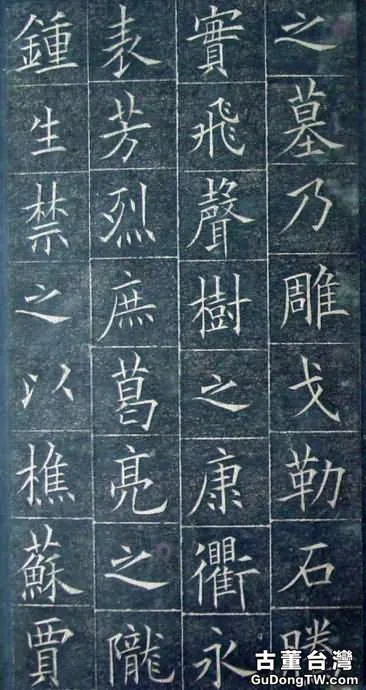 之墓乃雕戈勒石騰
實飛聲樹之康衢永
表芳烈庶葛亮之隴
鍾生禁之以樵蘇賈
古董台灣
GuDongTW.com